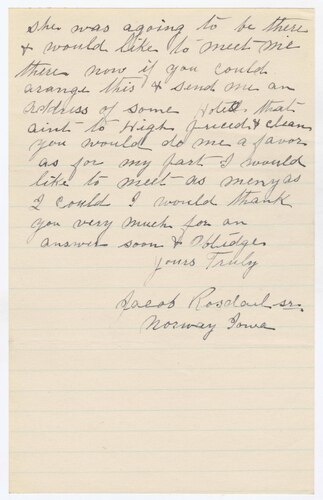 she was agoing to be there
& would like to meet me
there now if you could
arange this & send me an
address of some Hotell that
aint to High priced & clean
you would do me a favor
as for my part I would
like to meet as meny as
I could I would thank
you very much for an
answer soon & Oblidge
yours Truly
Jacob Rosdail sr.
Norway Iowa